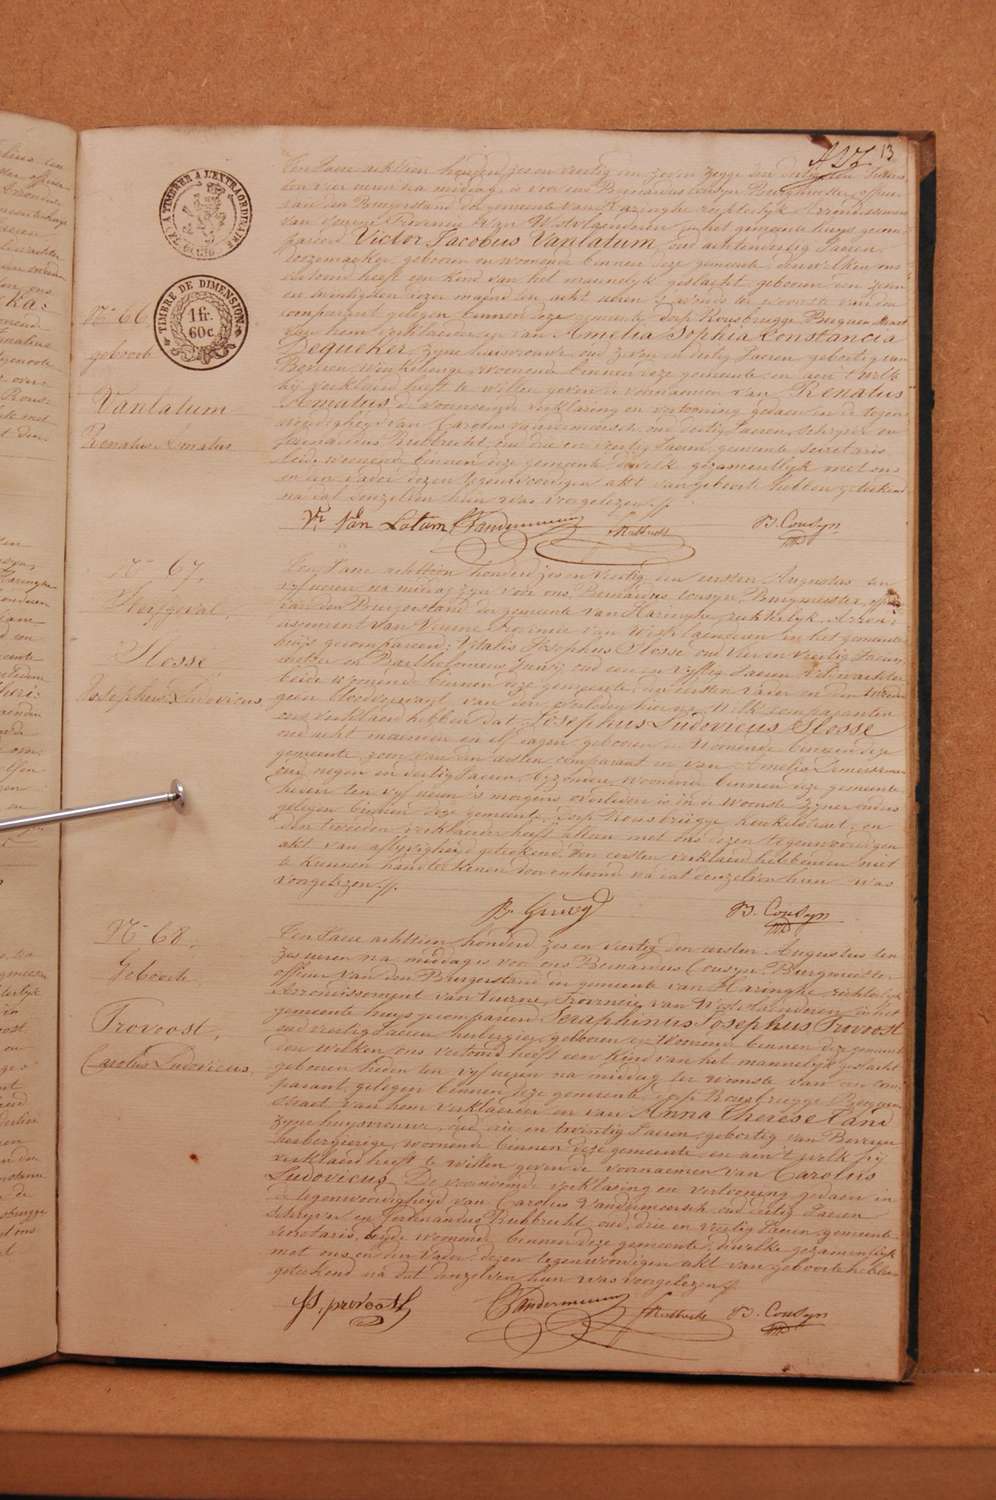 13
A TIMBRER A L'EXTRAORDINAIRE
TIMBRE DE DIMENSION
1 fr.
60 c.
N° 66
geboorte
Vanlatum
Renatus Amatus
Ten Jaere achttien honderd zes en veertig den
ten vier ueren na middag, is voor ons Bernardus Cousyn Burgmeester, officier
van den Burgerstand der gemeente van Haringhe rechterlyk Arrondissement
van Veurne Provincie van Westvlaenderen in het gemeente huys gecom
pareerd Victor Jacobus Vanlatum, oud achtendertig Jaeren
geboren en woonende binnen deze gemeente, dewelken ons
vertoond heeft een kind van het mannelyk geslacht geboren den
comparant gelegen binnen deze gemeente, dorp Rousbrugge Bergen straet
van hem verklaerder en van Amelia Sophia Constancia
Dequeker, zyne huisvrouwe, oud zeven en dertig Jaeren, geboortig van
woonende binnen deze gemeente, en aen 't welk
hy verklaerd heeft te willen geven de voornamen van Renatus
Amatus, de voornoemde verklaring en vertooning gedaen in de tegen
woordigheyd van Carolus Vandermeersch, oud dertig Jaeren, schryver en
Ferdinandus Rubbrecht, oud drie en veertig Jaeren, gemeente secretaris
beide woonende binnen deze gemeente, dewelke gezamentlyk met ons
en den vader dezen tegenwoordigen akt van geboorte hebben geteekend
na dat denzelven hun was voorgelezen.
Vr Van Latum C Vandermeersch F Rubbrecht B. Cousyn
N° 67.
Sterfgeval
Slosse
Josephus Ludovicus
Ten Jaere achttien honderd zes en veertig den eersten Augustus ten
vyf ueren na middag zyn voor ons Bernardus Cousyn, Burgmeester, officier
van den Burgerstand der gemeente van Haringhe, rechterlyk Arron
dissement van Veurne Provincie van Westvlaenderen in het gemeente
huys gecompareerd, Vitalis Josephus Slosse oud vier en veertig Jaeren,
en Bartholomeus oud een en vyftig Jaeren
beide woonende binnen deze gemeente, den eersten vader en den tweeden
geen bloedverwant van den overleden hier na, welke comparanten
ons verklaerd hebben dat Josephus Ludovicus Slosse
oud acht maenden en elf dagen geboren en woonende binnen deze
gemeente, zoon van den eersten comparant en van Amelia
oud negen en dertig Jaeren, byzondere, woonende binnen deze gemeente
heden ten vyf ueren 's morgens overleden is in de wooning zyner ouders
gelegen binnen deze gemeente, dorp Rousbrugge en
den tweeden verklaerder heeft alleen met ons dezen tegenwoordigen
akt van aflyvigheyd geteekend, den eersten verklaerd hebbende niet
te kunnen handteekenen door onkunde na dat denzelven hun was
voorgelezen.
B. Cousyn
N° 68.
Geboorte
Provoost,
Carolus Ludovicus.
Ten Jaere achttien honderd zes en veertig den eersten Augustus ten
zes ueren na middag is voor ons Bernardus Cousyn Burgmeester
officier van den Burgerstand der gemeente van Haringhe, rechterlyk
Arrondissement van Veurne, Provincie van Westvlaenderen in het
gemeente huys gecompareerd Seraphinus Josephus Provoost
oud veertig Jaeren herbergier, geboren en woonend binnen deze gemeente
den welken ons vertoond heeft een kind van het mannelyk geslacht
geboren heden ten vyf ueren na middag ter woonste van den com
parant, gelegen binnen deze gemeente, dorp Rousbrugge Bergen
straet van hem verklaerder en van Anna Therese Cani
zyne huysvrouwe, oud drie en twintig Jaeren, geboortig van Beveren
herbergierege, woonende binnen deze gemeente en aen 't welk hy
verklaerd heeft te willen geven de voornaemen van Carolus
Ludovicus. De voornoemde verklaring en vertooning gedaen in
de tegenwoordigheyd van Carolus Vandermeersch oud dertig Jaeren
Schryver en Ferdinandus Rubbrecht, oud drie en veertig Jaeren gemeente
secretaris, beyde woonend binnen deze gemeente, dewelke gezamenlyk
met ons en den vader dezen tegenwoordigen akt van geboorte hebben
geteekend na dat denzelven hun was voorgelezen.
S J. provoost C Vandermeersch F Rubbrecht B. Cousyn